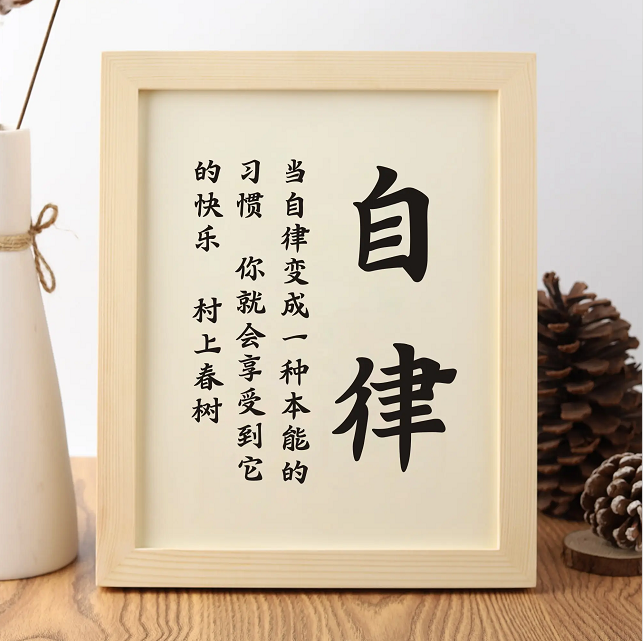 自律
当自律变成一种本能的
习惯 你就会享受到它
的快乐 村上春树